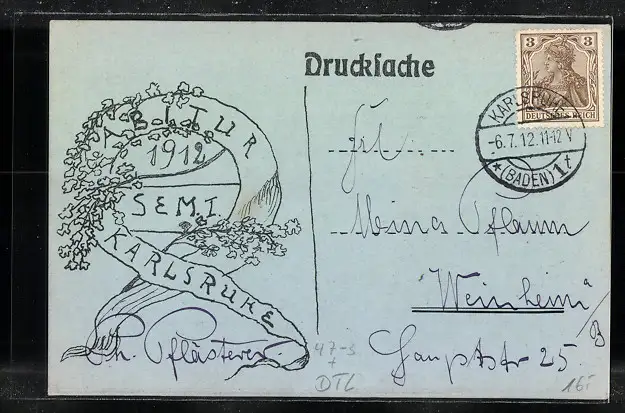 Drucksache
3 3
DEUTSCHES REICH
KARLSRUHE
-6.7.12.11-12V
*(BADEN)1t
ABITUR
1912
SEMI.
KARLSRUHE
Ch. Pflästerer.
Frl.
Mina Pflaum
Weinheim a/B
Hauptstr 25
47-3
+
DTL
16T